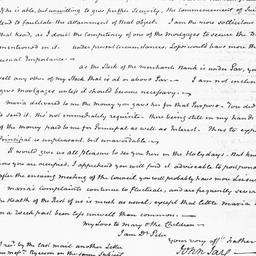 If he is able, but unwilling to give further Security, the commencement of Suit
tend to facilitate the attainment of that Object. I am the more sollicitous
that head, as I doubt the competency of one of the mortgages to secure the
mentioned in it: under present circumstances, Lefs would have more the
onal Importance —
as the Stock of the merchants Bank is under Par, you
sell any other of my Stock that is at or above Par — I am not inclin
give mortgages unless it should become necessary. —
maria delivered to me the money you gave her for that Purpose. You did
to send it, this not immediately requisite — there being still in my hands
of the money paid to me for Principal as well as Interest. Thus to exp
Principal is unpleasant but unavoidable. —
It would give us all pleasure to see you here in the Holydays. But kno
how you are occupied, I apprehend you will find it adviseable to postpone
after the ensuing meeting of the Council, you will probably have more Leisure
maria's Complaints continue to fluctuate, and are frequently severe
the Health of the Rest of us is much as usual, except that little maria
for a week past been less unwell than common. —
my Love to Mary & the Children —
I am Dr. Peter
your very aff. Father
John Jay —
I recd. by the last mail another Letter
from mr. Ryerson on the same Subject